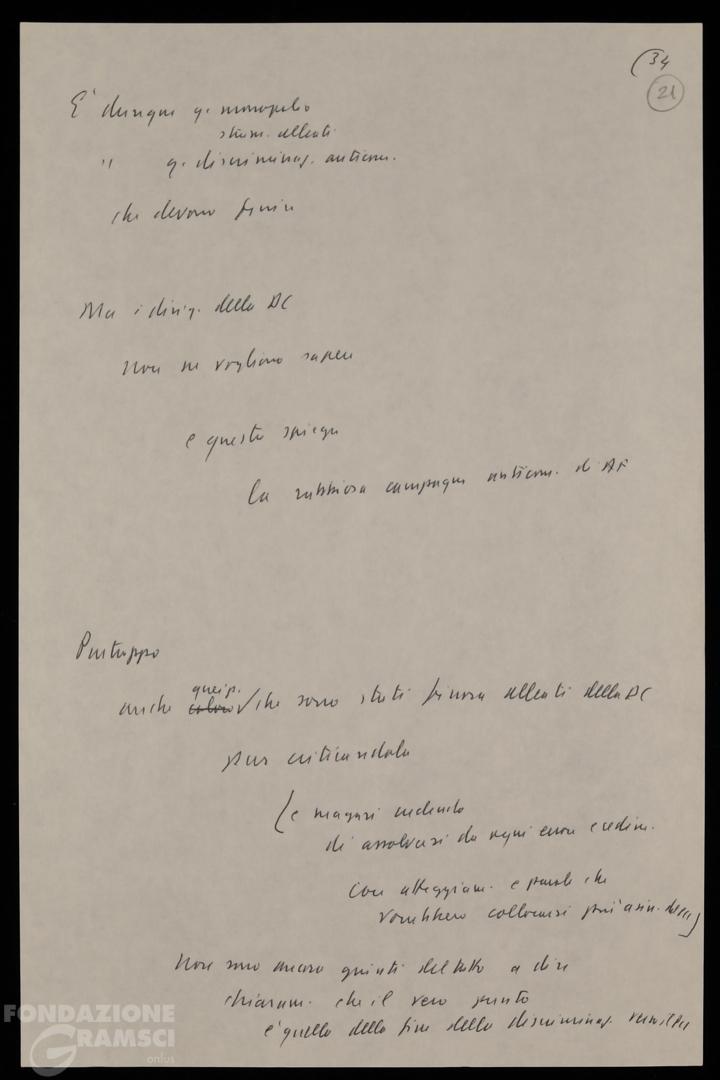 (34
21
E' dunque q. monopolio
strum. alleati
" q. discriminaz. anticom.
che devono finire
Ma i dirig. della DC
non ne vogliono sapere
e questo spiega
la rabbiosa campagna anticom. di AF
Purtroppo
queip.
anche coloro che sono stati finora alleati della DC
pur criticandola
(e magari credendo
di assolversi da ogni
con atteggiam. e parole che
vorrebbero collocarsi più a sin.
non sono ancora giunti del tutto a dire
chiaram. che il vero punto
è quello della fine della discriminaz.
FONDAZIONE
GRAMSCI
onlus